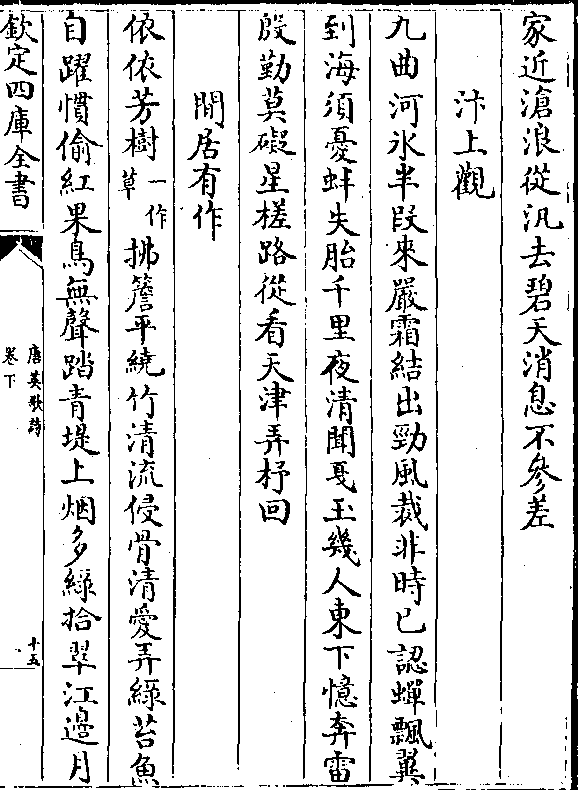 家近滄浪從汎去碧天消息不參差
汴上觀
九曲河冰半段來嚴霜結出勁風裁非時已認蟬飄翼
到海須憂蚌失胎千里夜清聞戛玉幾人東下憶奔雷
殷勤莫礙星槎路從看天津弄杼回
閒居有作
依依芳樹一作草拂簷平繞竹清流侵骨清愛弄綠苔魚
自躍慣偷紅果鳥無聲踏青堤上烟多綠拾翠江邉月
欽定四庫全書
唐英歌詩
卷下
十五